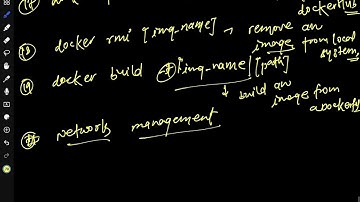 dockerHub
(18) docker rmi [img_name] → remove an
image from local
system.
(19) docker build img-name [path]
↓ build an
image from
a dockerfile
networks management